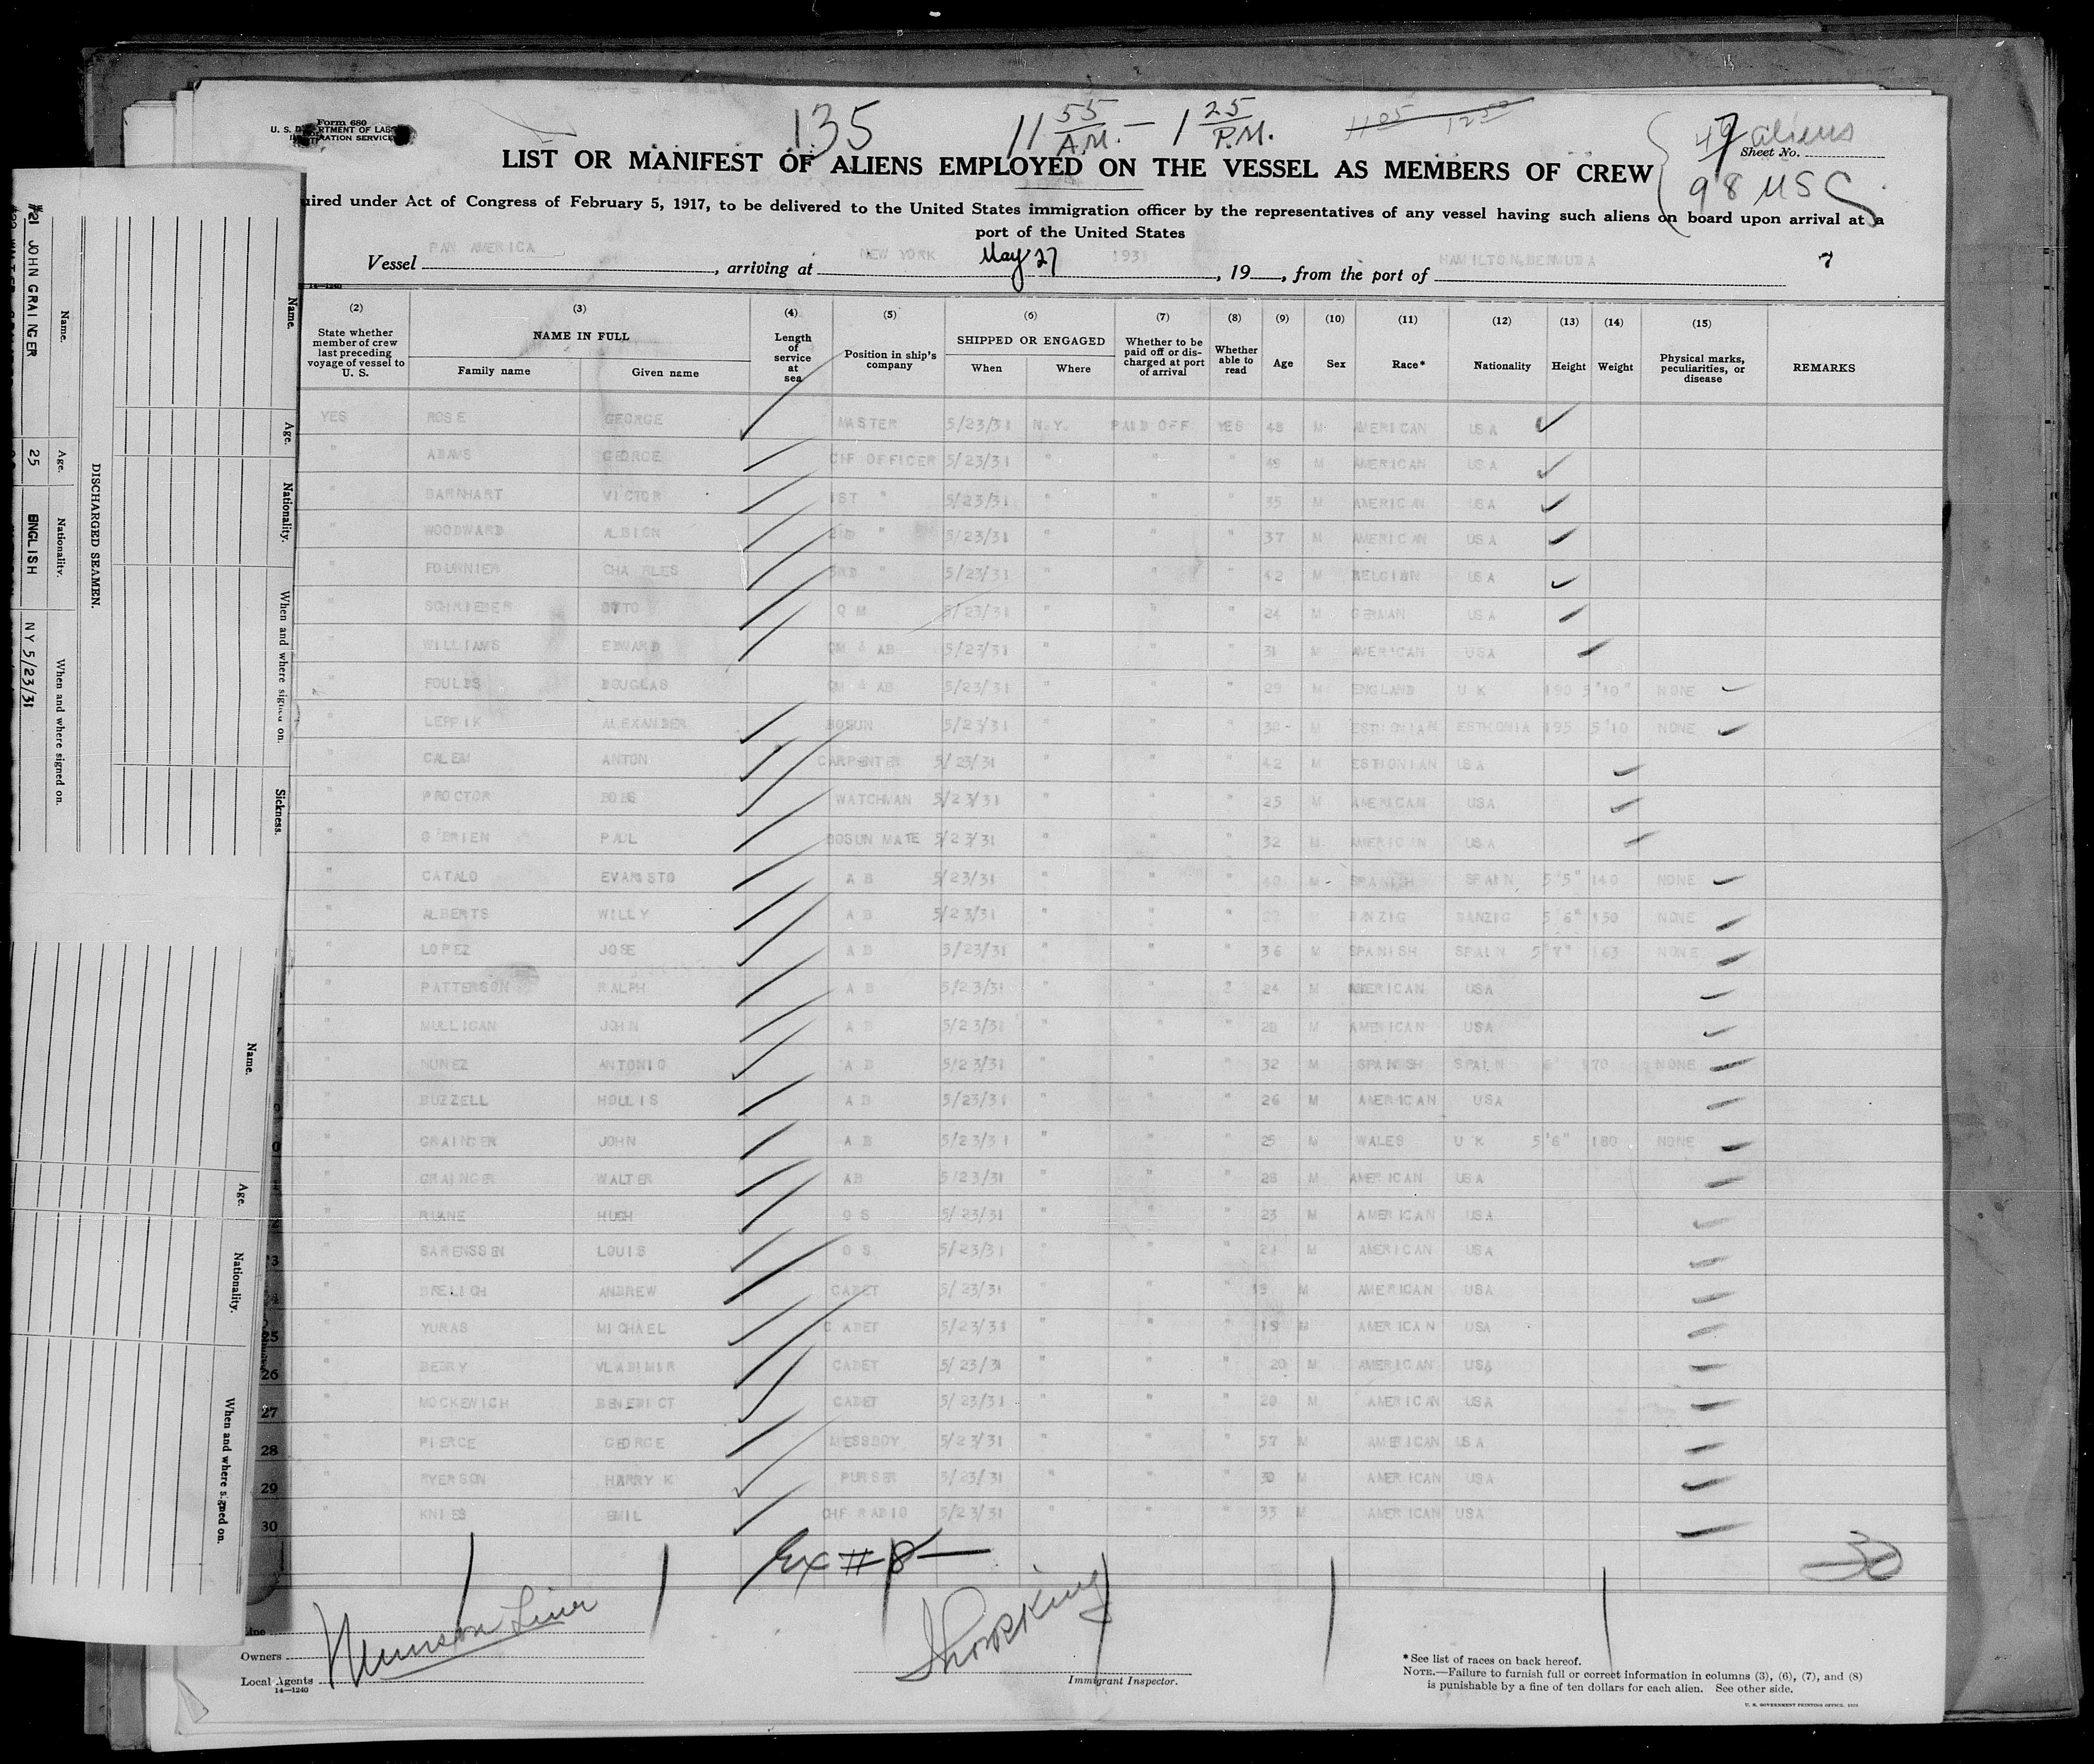 Form 680
U. S. DEPARTMENT OF LABOR
IMMIGRATION SERVICE
135 11 55 A.M. — 1 25 P.M. 1105 1250
aliens
Sheet No.
98 USC
LIST OR MANIFEST OF ALIENS EMPLOYED ON THE VESSEL AS MEMBERS OF CREW
uired under Act of Congress of February 5, 1917, to be delivered to the United States immigration officer by the representatives of any vessel having such aliens on board upon arrival at a
port of the United States
Vessel PAN AMERICA, arriving at NEW YORK May 27 1931, 19, from the port of HAMILTON, BERMUDA 7
14—1240
(2) (3) (4) (5) (6) (7) (8) (9) (10) (11) (12) (13) (14) (15)
State whether member of crew last preceding voyage of vessel to U. S. NAME IN FULL Family name Given name Length of service at sea Position in ship's company SHIPPED OR ENGAGED When Where Whether to be paid off or discharged at port of arrival Whether able to read Age Sex Race* Nationality Height Weight Physical marks, peculiarities, or disease REMARKS
YES ROSE GEORGE MASTER 5/23/31 N.Y. PAID OFF YES 48 M AMERICAN USA
" ADAMS GEORGE CHF OFFICER 5/23/31 " " " 49 M AMERICAN USA
" BARNHART VICTOR 1ST " 5/23/31 " " " 35 M AMERICAN USA
" WOODWARD ALBION 2ND " 5/23/31 " " " 37 M AMERICAN USA
" FOURNIER CHARLES 3RD " 5/23/31 " " " 42 M BELGIAN USA
" SCHRIEBER OTTO Q M 5/23/31 " " " 24 M GERMAN USA
" WILLIAMS EDWARD QM & AB 5/23/31 " " " 31 M AMERICAN USA
" FOULDS DOUGLAS QM & AB 5/23/31 " " " 29 M ENGLAND U K 190 5'10" NONE
" LEPPIK ALEXANDER BOSUN 5/23/31 " " " 30 M ESTHONIAN ESTHONIA 195 5'10 NONE
" CALEM ANTON CARPENTER 5/23/31 " " " 42 M ESTHONIAN USA
" PROCTOR WATCHMAN 5/23/31 " " " 25 M AMERICAN USA
" O'BRIEN PAUL BOSUN MATE 5/23/31 " " " 32 M AMERICAN USA
" CATALO EVARISTO A B 5/23/31 " " " 40 M SPANISH SPAIN 5'5" 140 NONE
" ALBERTS WILLY A B 5/23/31 " " " M DANZIG DANZIG 5'6" 150 NONE
" LOPEZ JOSE A B 5/23/31 " " " 36 M SPANISH SPAIN 5'7" 163 NONE
" PATTERSON RALPH A B 5/23/31 " " 24 M AMERICAN USA
" MULLIGAN JOHN A B 5/23/31 " " " 28 M AMERICAN USA
" NUNEZ ANTONIO A B 5/23/31 " " " 32 M SPANISH SPAIN 6' 170 NONE
" BUZZELL HOLLIS A B 5/23/31 " " " 26 M AMERICAN USA
" GRAINGER JOHN A B 5/23/31 " " " 25 M WALES U K 5'6" 180 NONE
" GRAINGER WALTER AB 5/23/31 " " " 28 M AMERICAN USA
" RUANE HUGH O S 5/23/31 " " " 23 M AMERICAN USA
" SARENSSEN LOUIS O S 5/23/31 " " " 21 M AMERICAN USA
" BRELICH ANDREW CADET 5/23/31 " " " 19 M AMERICAN USA
25 " YURAS MICHAEL CADET 5/23/31 " " " 19 M AMERICAN USA
26 " BEDRY VLADIMIR CADET 5/23/31 " " " 20 M AMERICAN USA
27 " MOCKEWICH BENEDICT CADET 5/23/31 " " " 20 M AMERICAN USA
28 " PIERCE GEORGE MESSBOY 5/23/31 " " " 57 M AMERICAN USA
29 " RYERSON HARRY K PURSER 5/23/31 " " " 30 M AMERICAN USA
30 " KNIES EMIL CHF RADIO 5/23/31 " " " 33 M AMERICAN USA
Ex # 8 — 30
Line
Owners Munson Line
Local Agents
14—1240
Immigrant Inspector.
*See list of races on back hereof.
NOTE.—Failure to furnish full or correct information in columns (3), (6), (7), and (8)
is punishable by a fine of ten dollars for each alien. See other side.
U. S. GOVERNMENT PRINTING OFFICE
DISCHARGED SEAMEN.
Name. Age. Nationality. When and where signed on.
#21 JOHN GRAINGER 25 ENGLISH NY 5/23/31
Name. Age. Nationality. When and where signed on. Sickness.
Name. Age. Nationality. When and where signed on.